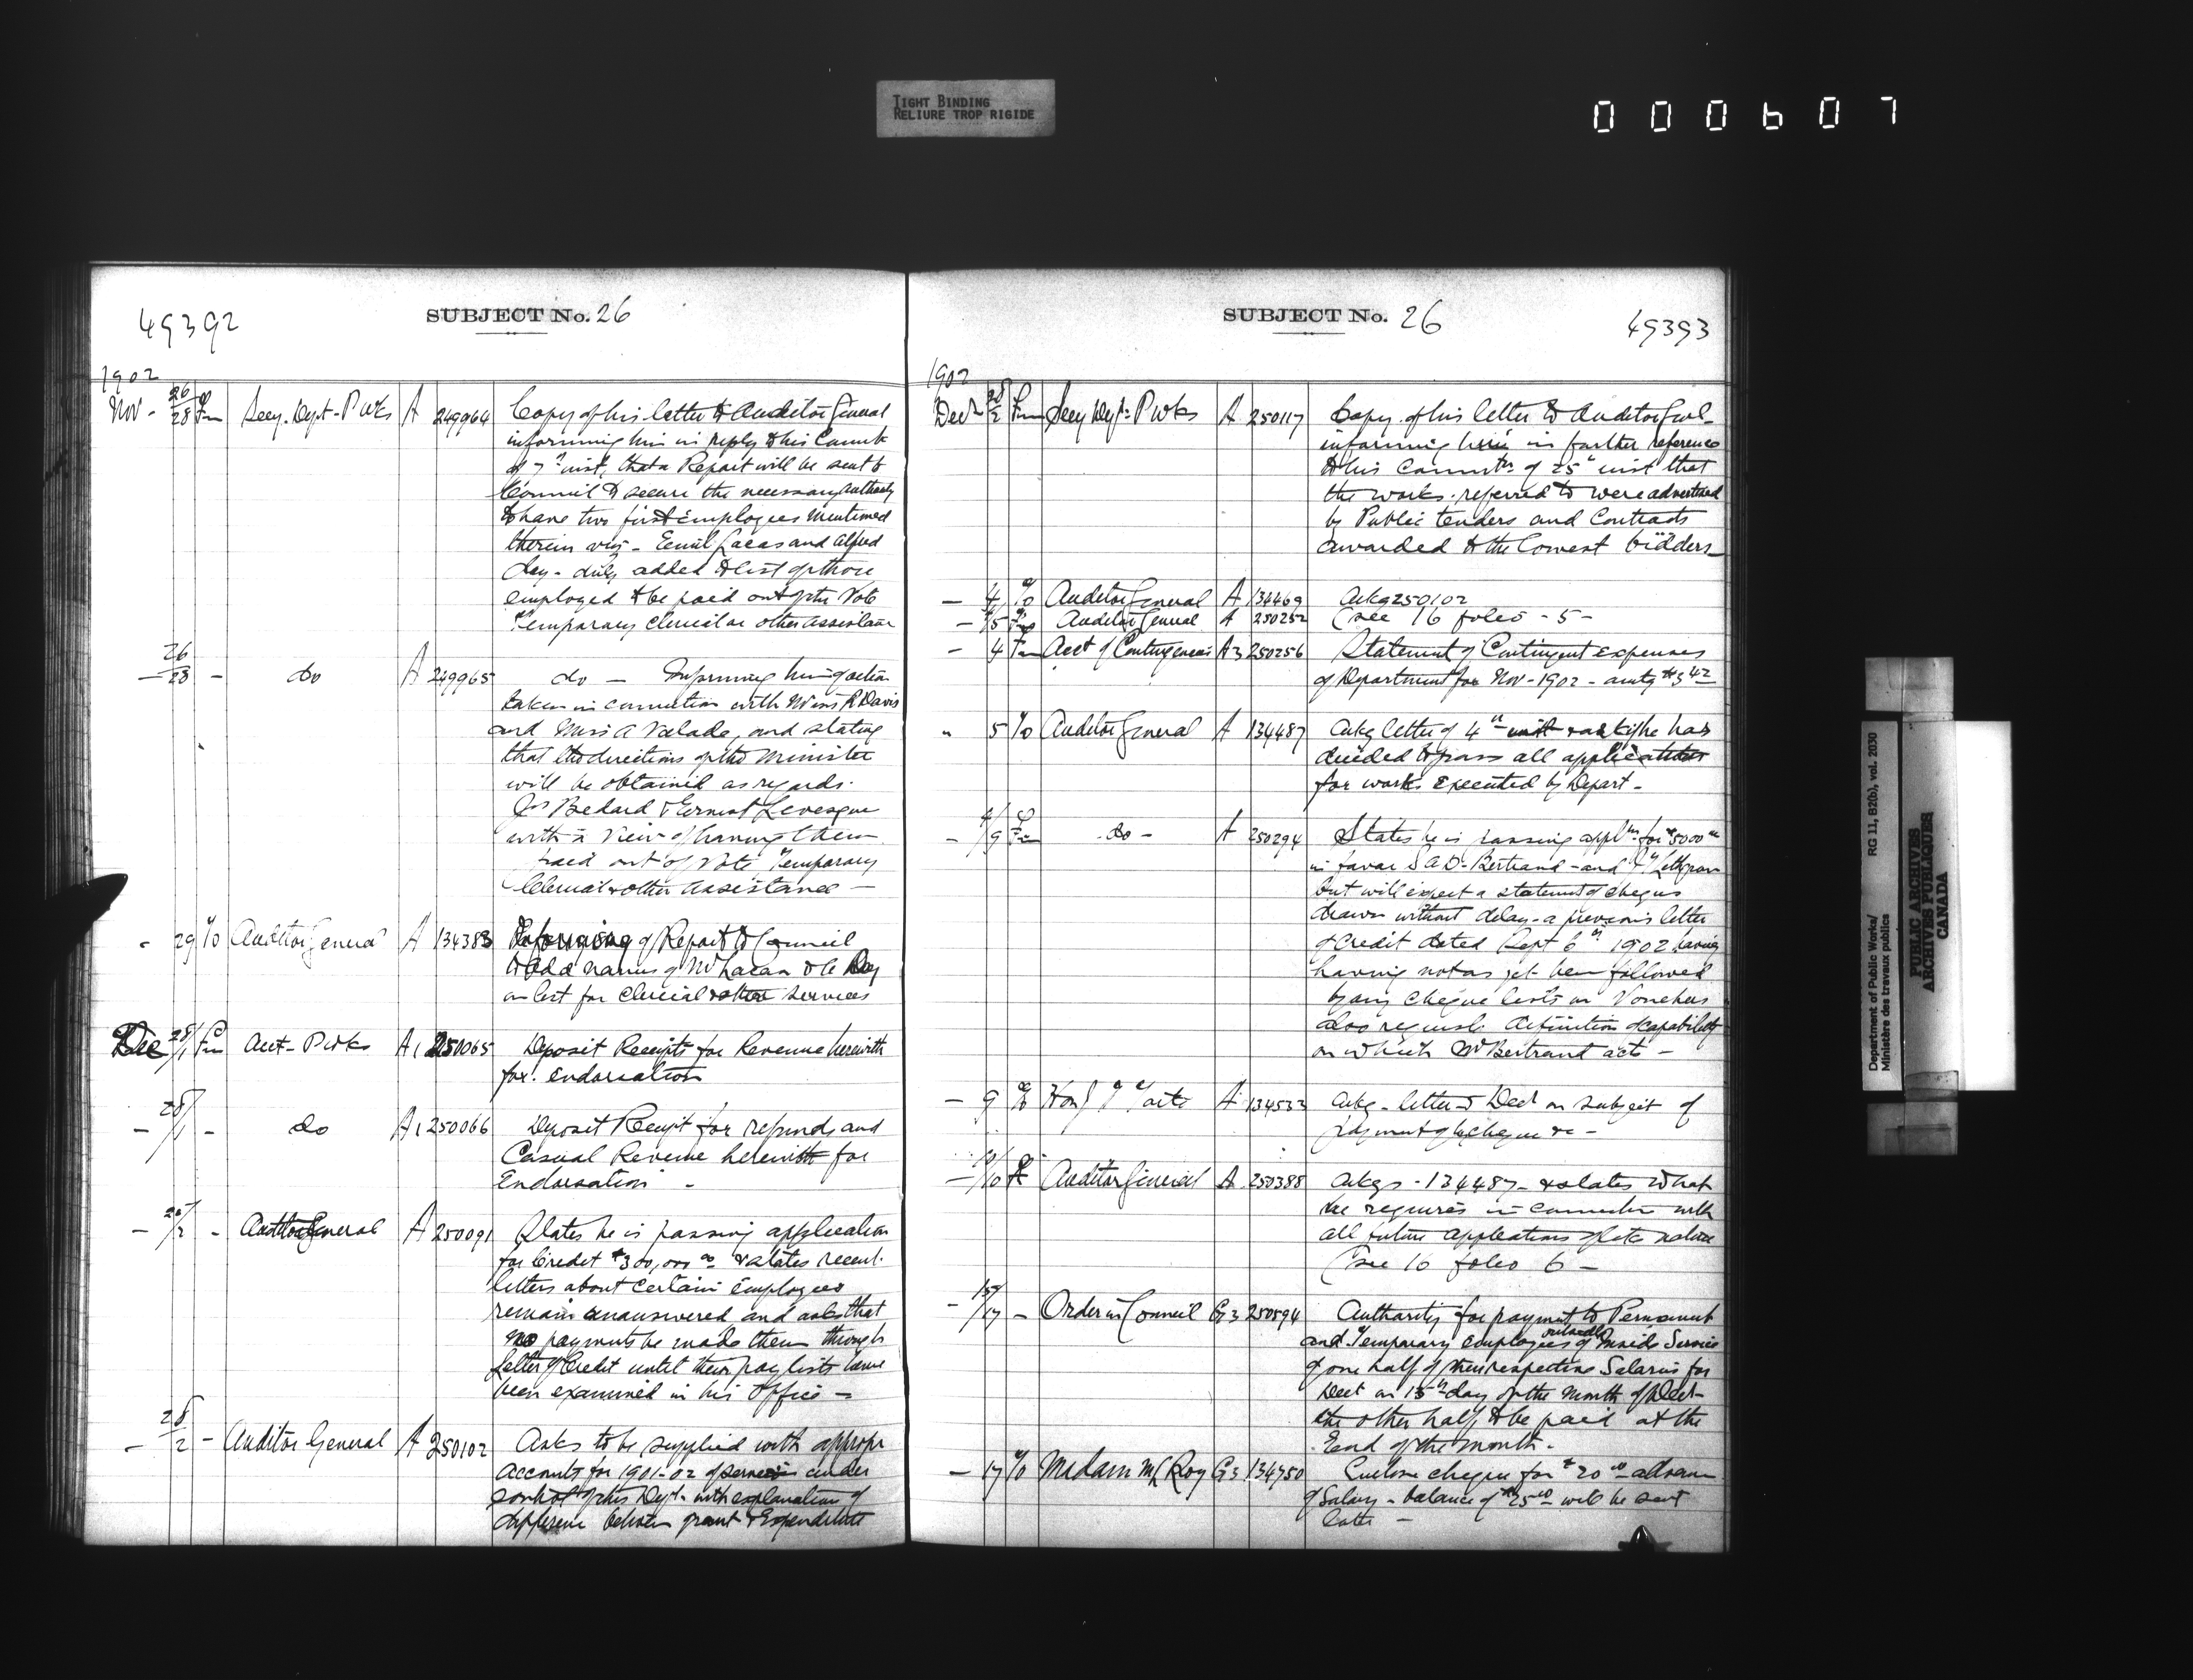 TIGHT BINDING
RELIURE TROP RIGIDE
000607
49392
SUBJECT No. 26
1902
Nov - 26/28 Fm Secy. Dept. P. Wks A 249964 Copy of his letter to Auditor General
informing him in reply to his Commtn
of 7th inst, that a Report will be sent to
Council to secure the necessary authority
to have two first Employees mentioned
therein viz - Emil Lacas and Alfred
Roy - duly added to list of those
employed to be paid out of the Vote
"Temporary Clerical or other assistance
- 26/28 - do A 249965 do - Informing him of action
taken in connection with Miss R Davis
and Miss A Valade, and stating
that the directions of the Minister
will be obtained as regards
Jos Bedard & Ernest Levesque
with a view of having them
paid out of Vote Temporary
Clerical & other assistance -
- 29 To Auditor General A 134383 of Report to Council
to add names of
on list for Clerical & other services
Dec 28/1 Fm Acct- P. Wks A1 250065 Deposit Receipts for Revenue herewith
for endorsation
- 28/1 - do A1 250066 Deposit Receipt for refunds and
Casual Revenue herewith for
Endorsation -
- /2 - Auditor General A 250091 States he is passing application
for Credit $300,000 00 & states recent
letters about certain Employees
remain unanswered and asks that
no payments be made them through
Letter of Credit until their pay lists have
been examined in his office -
- 28/2 - Auditor General A 250102 Asks to be supplied with appropr
Accounts for 1901-02 of services under
control of this Dept. with explanation of
difference between grant & Expenditure
SUBJECT No. 26
49393
1902
Decr 28/2 Fm Secy Dept. P. Wks A 250117 Copy of his letter to Auditor Genl
informing him in further reference
to his Commtn of 25th inst that
the works referred to were advertised
by Public tenders and Contracts
awarded to the lowest bidders
- 4 To Auditor General A 134469 Ackg 250102
- /5 Fm Auditor General A 250252 (see 16 folio - 5 -
- 4 Fm Acct of Contingencies A3 250256 Statement of Contingent expenses
of Department for Nov - 1902 - amtg $3 42
" 5 To Auditor General A 134487 Ackg letter of 4th inst he has
decided to pass all application
for works executed by Depart -
- 4/9 Fm - do - A 250294 States he is passing appltn for $5000 00
in favor S A D - Bertrand - and
but will expect a statement of cheques
drawn without delay - a previous letter
of Credit dated Sept 6th 1902 having
having not as yet been followed
by any Cheque lists or Vouchers
also requests definition of capability
on which Mr Bertrand acts -
- 9 To Hon J I Tarte A 134533 Ackg - letter 5 Decr on subject of
payment of by cheque &c -
- 10/10 Fm Auditor General A 250388 Ackgs - 134487 - & states what
he requires in connection with
all future applications of like nature
(See 16 folio 6 -
- 15/17 - Order in Council G3 250594 Authority for payment to Permanent
and Temporary employees of Inside Service
of one half of their respective Salaries for
Decr on 15th day of the month of Decr -
the other half to be paid at the
End of the month -
- 17 To Madam M L Roy G3 134750 Enclose cheque for $20 00 advance
of Salary - balance of $25 00 will be sent
later -
Department of Public Works/
Ministère des travaux publics
RG 11, B2(b), vol. 2030
PUBLIC ARCHIVES
ARCHIVES PUBLIQUES
CANADA